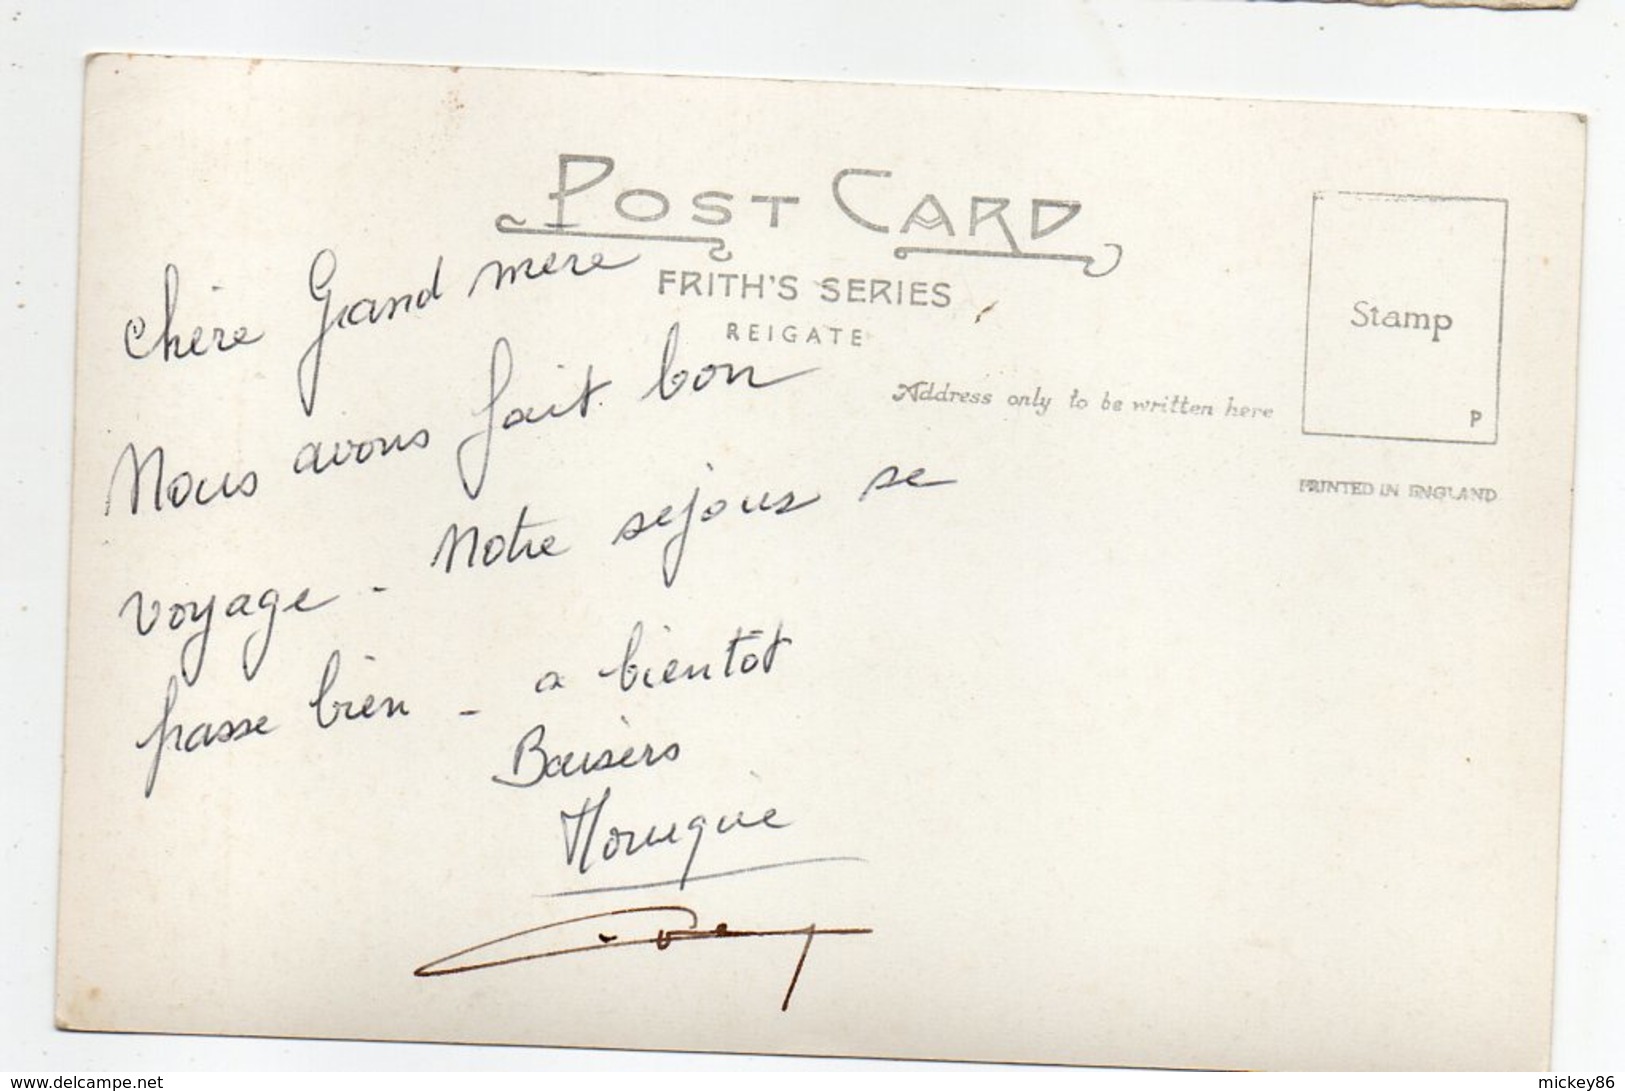 POST CARD
FRITH'S SERIES
REIGATE
Address only to be written here
Stamp
P
PRINTED IN ENGLAND
Chère Grand mère
Nous avons fait bon
voyage - Notre séjour se
passe bien - a bientôt
Baisers
Monique
www.delcampe.net
mickey86